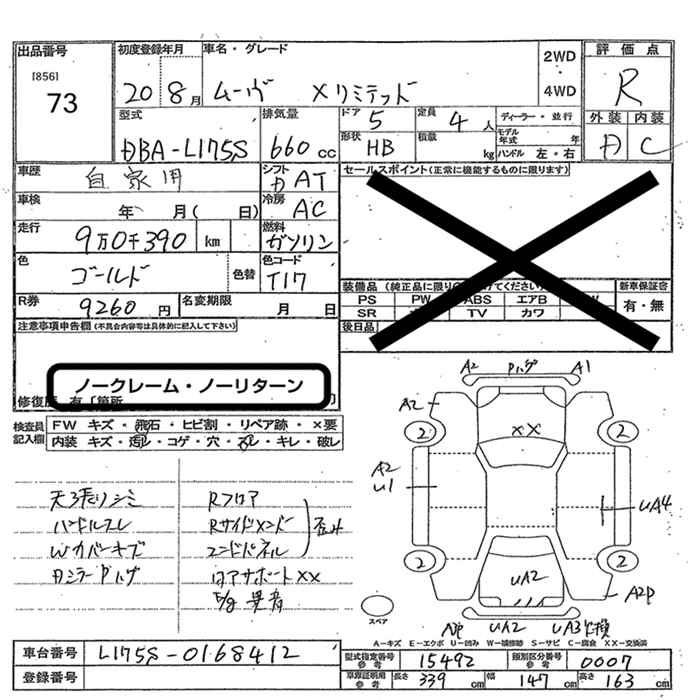 出品番号
[856]
73
初度登録年月
20 8月
車名・グレード
ムーヴ Xリミテッド
2WD
4WD
評価点
R
外装 内装
D C
型式
DBA-L175S
排気量
660 CC
ドア
5
形状
HB
定員
4人
積載
kg
ディーラー・並行
モデル年式 年
ハンドル 左・右
車歴
自家用
シフト
D AT
セールスポイント(正常に機能するものに限ります)
車検
年 月( 日)
冷房
AC
走行
9万0千390 km
燃料
ガソリン
色
ゴールド
色替
色コード
T17
R券
9260円
名変期限
月 日
装備品
PS PW ABS エアB
SR TV カワ
新車保証書
有・無
後日品
注意事項申告欄(不具合内容等は具体的に記入して下さい)
ノークレーム・ノーリターン
検査員記入欄
FW キズ・飛石・ヒビ割・リペア跡・×要
内装 キズ・汚れ・コゲ・穴・ネレ・キレ・破レ
天張りシミ
ハンドルスレ
Wカバーキズ
Dミラーハゲ
Rフロア
Rサイドメンバ
エンドパネル
歪み
コアサポートXX
E/g 異音
A2 Pハゲ A1
A2
2 2
XX
A2
U1
UA4
2 2
UA2
A2P
AP UA2 UA3 交換
スペア
A-キズ E-エクボ U-凹み W-補修跡 S-サビ C-腐食 XX-交換済
車台番号
L175S-0168412
登録番号
型式指定番号 参考
15492
類別区分番号 参考
0007
車庫証明用 参考
長さ 339cm
幅 147cm
高さ 163cm